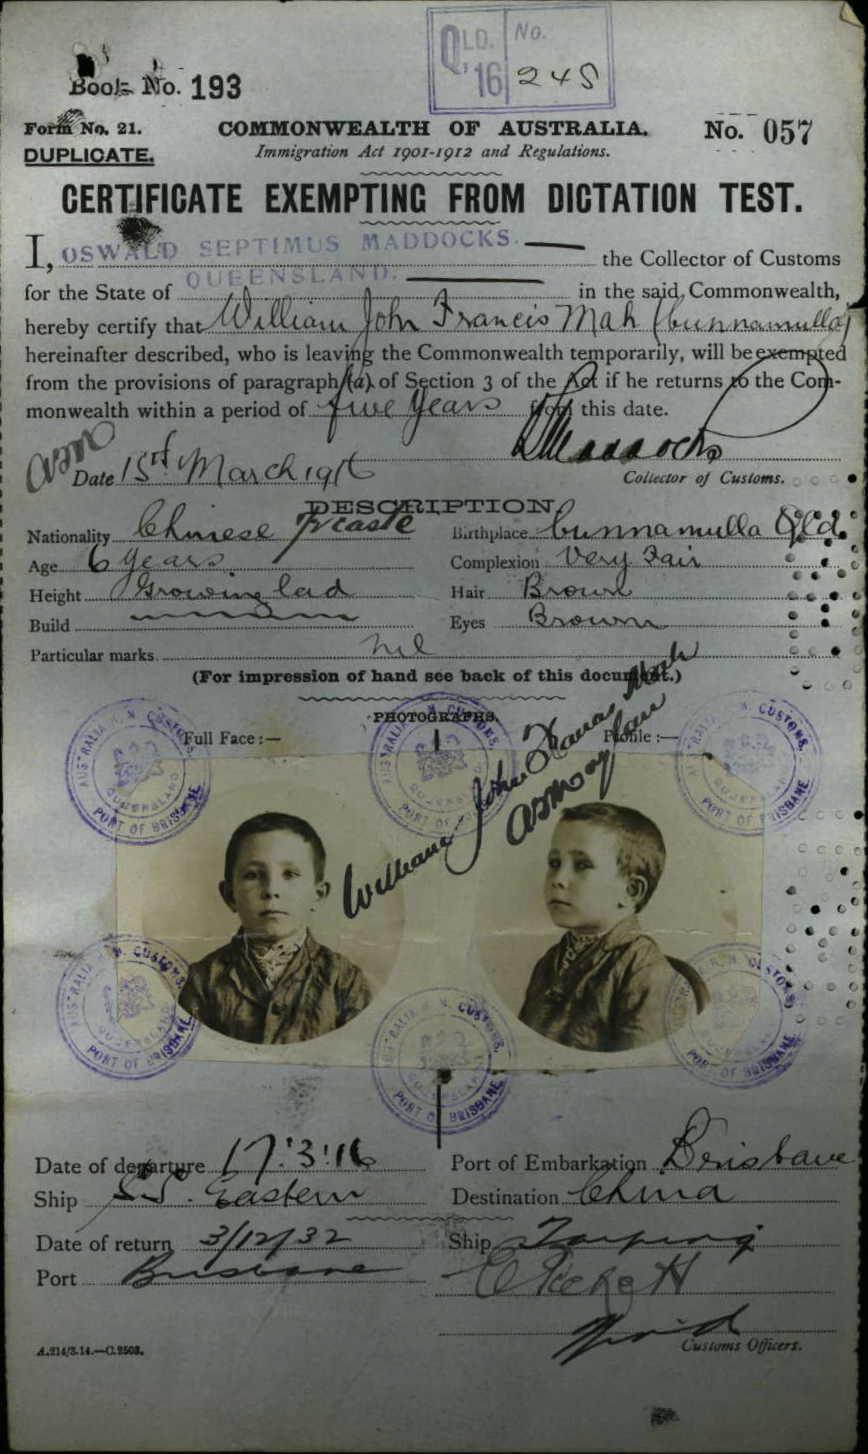 QLD. No.
'16 245
Book No. 193
Form No. 21.
DUPLICATE.
COMMONWEALTH OF AUSTRALIA.
Immigration Act 1901-1912 and Regulations.
No. 057
CERTIFICATE EXEMPTING FROM DICTATION TEST.
I, OSWALD SEPTIMUS MADDOCKS. the Collector of Customs
for the State of QUEENSLAND. in the said Commonwealth,
hereby certify that William John Francis Mah (Cunnamulla)
hereinafter described, who is leaving the Commonwealth temporarily, will be exempted
from the provisions of paragraph (a) of Section 3 of the Act if he returns to the Com-
monwealth within a period of five years from this date.
Maddocks
Date 15th March 1916 Collector of Customs.
DESCRIPTION
Nationality Chinese ½ caste Birthplace Cunnamulla Qld.
Age 6 years Complexion Very Fair
Height Growing lad Hair Brown
Build Eyes Brown
Particular marks. nil
(For impression of hand see back of this document.)
PHOTOGRAPHS.
Full Face :— Profile :—
William John Francis Mah
AUSTRALIA H. M. CUSTOMS. QUEENSLAND PORT OF BRISBANE
AUSTRALIA H. M. CUSTOMS. QUEENSLAND PORT OF
AUSTRALIA H. M. CUSTOMS. QUEENSLAND PORT OF BRISBANE
AUSTRALIA H. M. CUSTOMS. QUEENSLAND PORT OF BRISBANE
AUSTRALIA H. M. CUSTOMS. QUEENSLAND PORT OF BRISBANE
AUSTRALIA H. M. CUSTOMS. QUEENSLAND PORT OF BRISBANE
Date of departure 17.3.16 Port of Embarkation Brisbane
Ship S.S. Eastern Destination China
Date of return 3/12/32 Ship Taiping
Port Brisbane
Customs Officers.
A.214/3.14.—C.2503.